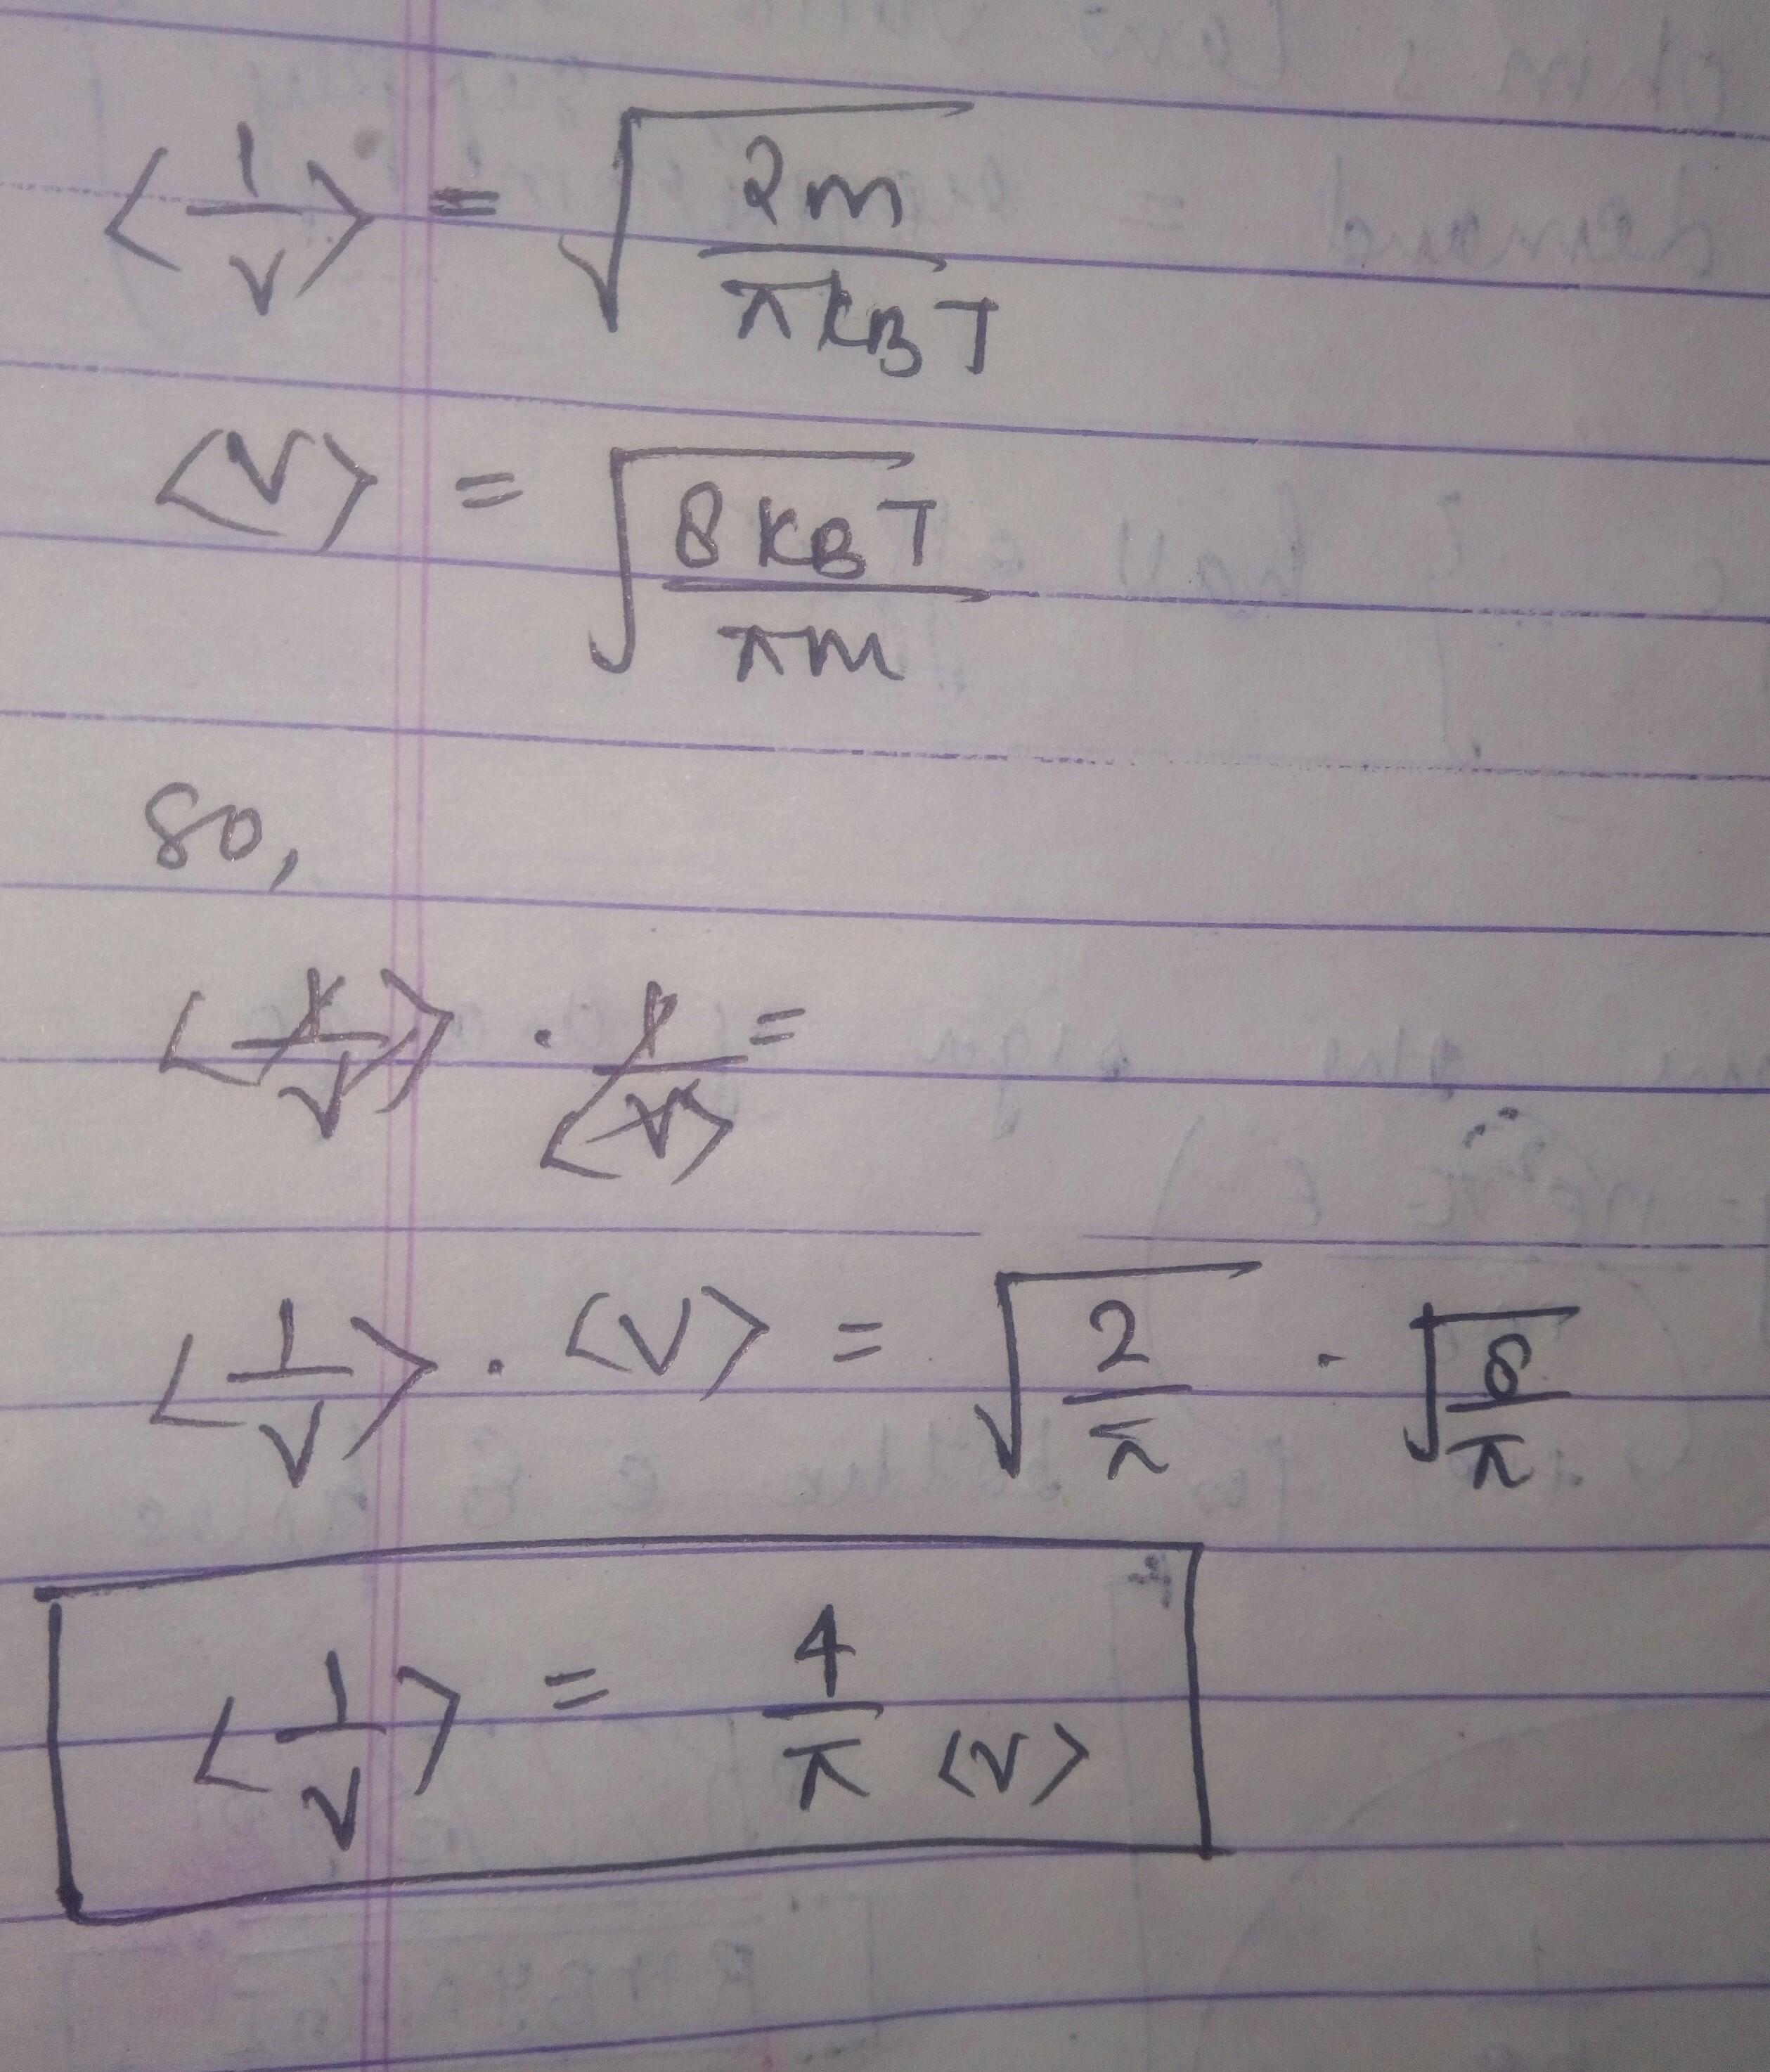 ⟨1/v⟩ = √(2m/πk_BT)
⟨v⟩ = √(8k_BT/πm)
so,
⟨1/v⟩ · 1/⟨v⟩ =
⟨1/v⟩ · ⟨v⟩ = √(2/π) · √(8/π)
⟨1/v⟩ = 4/π⟨v⟩